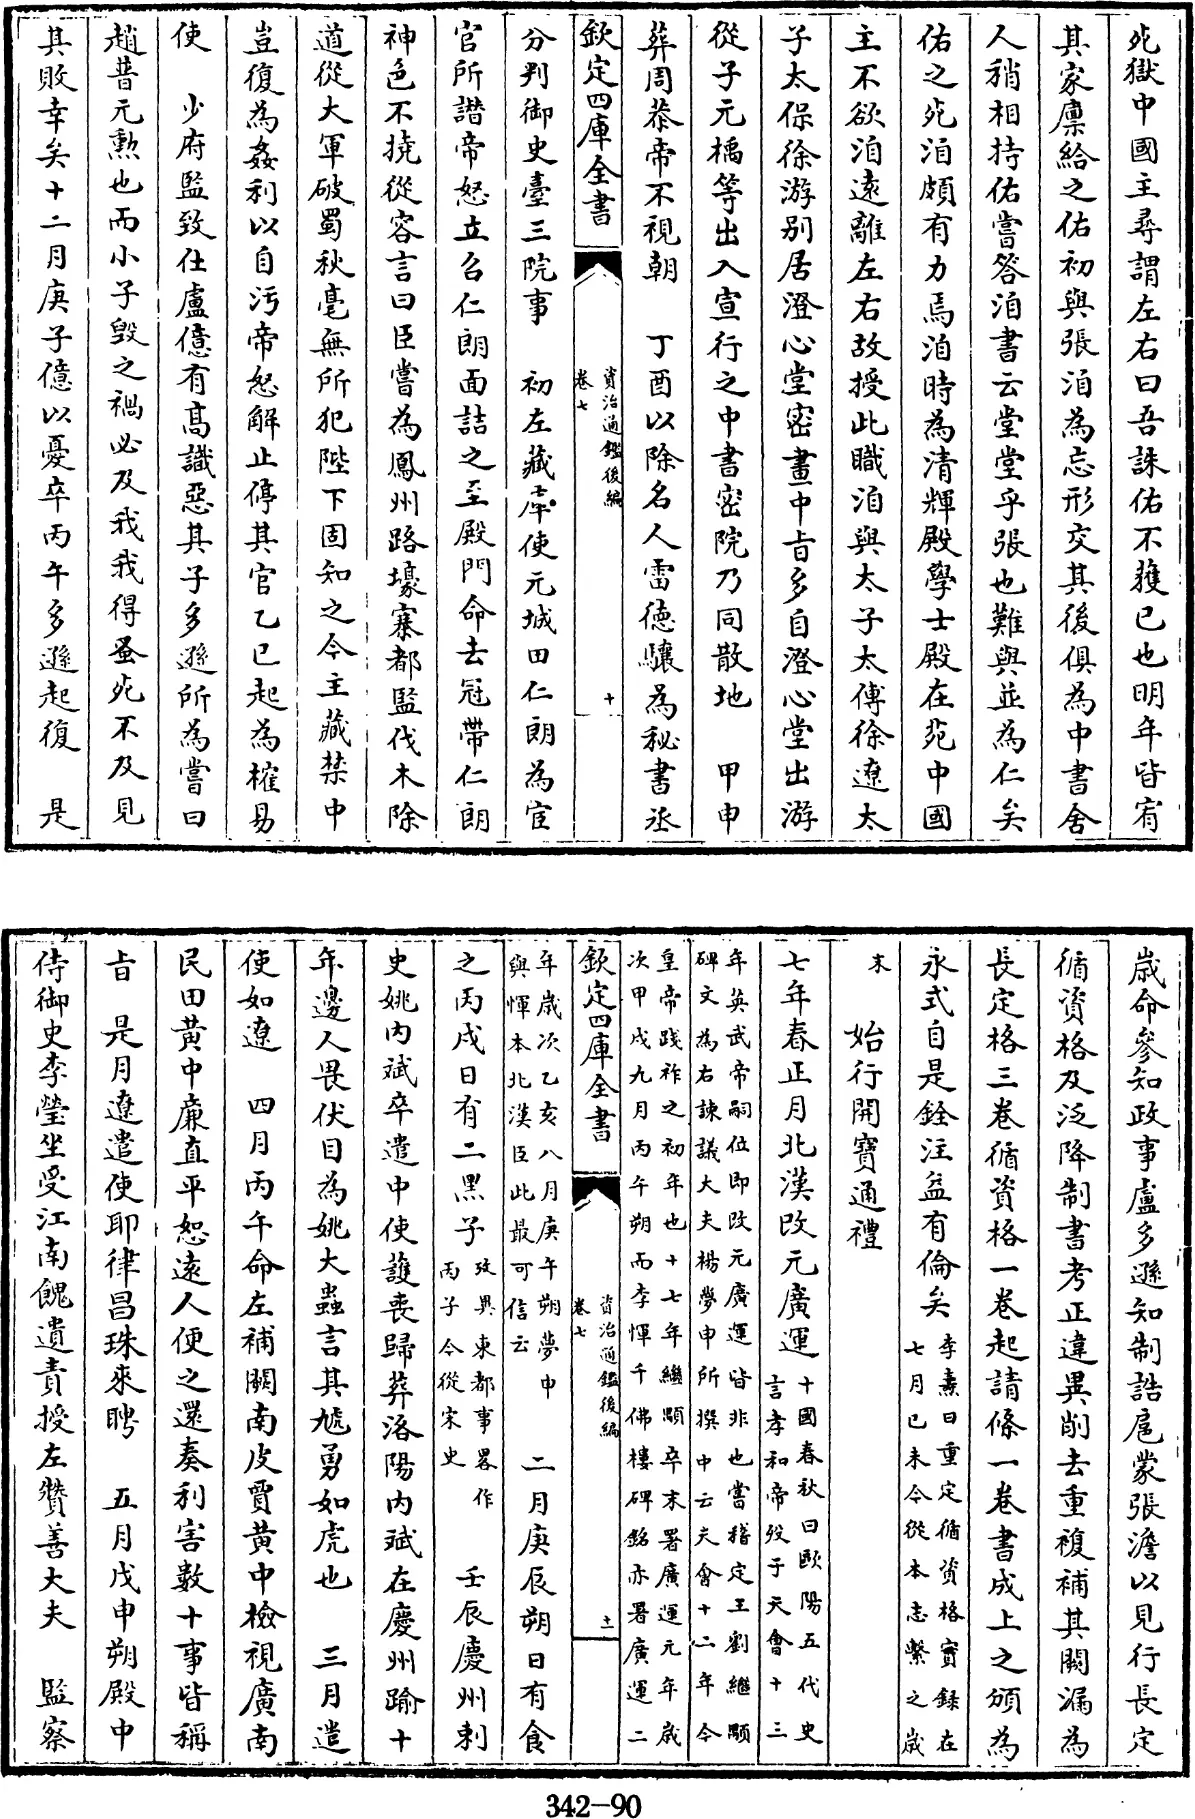 死獄中國主尋謂左右曰吾誅佑不獲已也明年皆宥
其家廪給之佑初與張洎為忘形交其後俱為中書舍
人稍相持佑嘗答洎書云堂堂乎張也難與並為仁矣
佑之死洎頗有力焉洎時為清輝殿學士殿在苑中國
主不欲洎遠離左右故授此職洎與太子太傅徐遼太
子太保徐游别居澄心堂密畫中旨多自澄心堂出游
從子元楀等出入宣行之中書密院乃同散地 甲申
葬周恭帝不視朝 丁酉以除名人雷德驤為秘書丞
欽定四庫全書 資治通鑑後編 卷七 十
分判御史臺三院事 初左藏庫使元城田仁朗為宦
官所譖帝怒立召仁朗面詰之至殿門命去冠帶仁朗
神色不撓從容言曰臣嘗為鳳州路壕寨都監伐木除
道從大軍破蜀秋毫無所犯陛下固知之今主藏禁中
豈復為姦利以自污帝怒解止停其官乙巳起為榷易
使 少府監致仕盧億有高識惡其子多遜所為嘗曰
趙普元勲也而小子毁之禍必及我我得蚤死不及見
其敗幸矣十二月庚子億以憂卒丙午多遜起復 是
歲命參知政事盧多遜知制誥扈蒙張澹以見行長定
循資格及泛降制書考正違異削去重複補其闕漏為
長定格三卷循資格一卷起請條一卷書成上之頒為
永式自是銓注益有倫矣 李燾曰重定循資格實録在
七月己未今從本志繫之歲
末
始行開寶通禮
七年春正月北漢改元廣運 十國春秋曰歐陽五代史
言孝和帝歿于天會十三
年英武帝嗣位即改元廣運皆非也嘗稽定王劉繼顒
碑文為右諫議大夫楊夢申所撰中云天會十二年今
皇帝踐祚之初年也十七年繼顒卒末署廣運元年歲
次甲戌九月丙午朔而李惲千佛樓碑銘亦署廣運二
欽定四庫全書 資治通鑑後編 卷七 十一
年歲次乙亥八月庚午朔夢申
與惲本北漢臣此最可信云
二月庚辰朔日有食
之丙戌日有二黒子 攷異東都事畧作
丙子今從宋史
壬辰慶州刺
史姚内斌卒遣中使護喪歸葬洛陽内斌在慶州踰十
年邊人畏伏目為姚大蟲言其虓勇如虎也 三月遣
使如遼 四月丙午命左補闕南皮賈黄中檢視廣南
民田黄中廉直平恕遠人便之還奏利害數十事皆稱
旨 是月遼遣使耶律昌珠來聘 五月戊申朔殿中
侍御史李瑩坐受江南餽遺責授左贊善大夫 監察
342-90